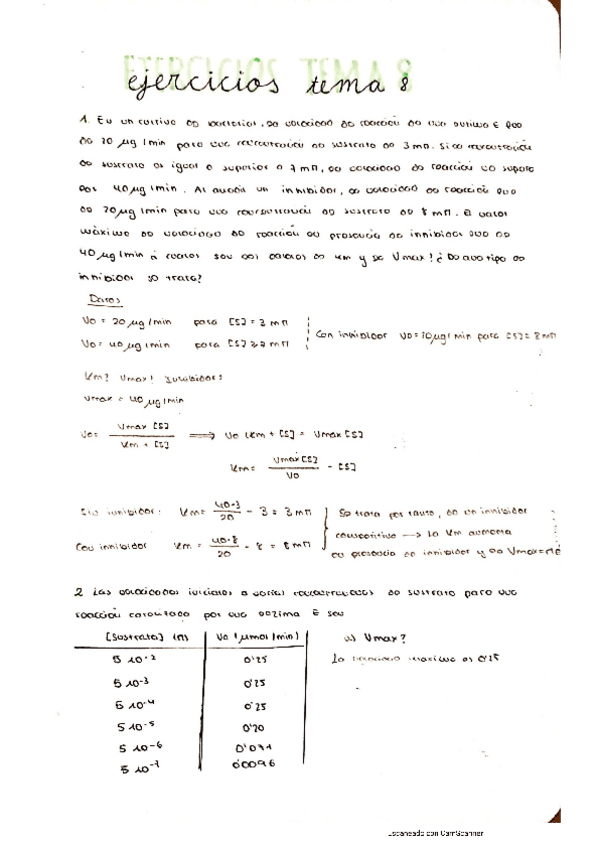 EJERCICIOS TEMA 8
ejercicios tema 8
1. En un cultivo de bacterias, la velocidad de reacción de una enzima E fue
de 20 µg/min para una concentración de sustrato de 3 mM. Si la concentración
de sustrato es igual o superior a 7 mM, la velocidad de reacción no supera
los 40 µg/min. Al añadir un inhibidor, la velocidad de reacción fue
de 20 µg/min para una concentración de sustrato de 8 mM. El valor
máximo de velocidad de reacción en presencia de inhibidor fue de
40 µg/min ¿ cuales son los valores de Km y de Vmax? ¿ De que tipo de
inhibidor se trata?
Datos
Vo = 20 µg/min para [S] = 3 mM
Vo = 40 µg/min para [S] ≥ 7 mM
Con inhibidor Vo = 20 µg/min para [S] = 8 mM
Km? Vmax? Inhibidor?
Vmax = 40 µg/min
Vo = Vmax [S] / Km + [S] ⟹ Vo (Km + [S] = Vmax [S]
Km = Vmax [S] / Vo - [S]
Sin inhibidor: Km = 40·3 / 20 - 3 = 3 mM
Con inhibidor Km = 40·8 / 20 - 8 = 8 mM
Se trata por tanto, de un inhibidor
competitivo → la Km aumenta
en presencia de inhibidor y la Vmax =
2 Las velocidades iniciales a varias concentraciones de sustrato para una
reacción catalizada por una enzima E son
[Sustrato] (M) Vo (µmol/min)
5 10-2 0'25
5 10-3 0'25
5 10-4 0'25
5 10-5 0'20
5 10-6 0'071
5 10-7 0'0096
a) Vmax?
La velocidad máxima es 0'25
Escaneado con CamScanner